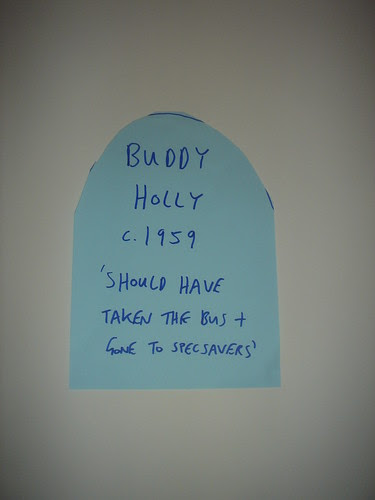 BUDDY
HOLLY
c. 1959
'SHOULD HAVE
TAKEN THE BUS +
GONE TO SPECSAVERS'